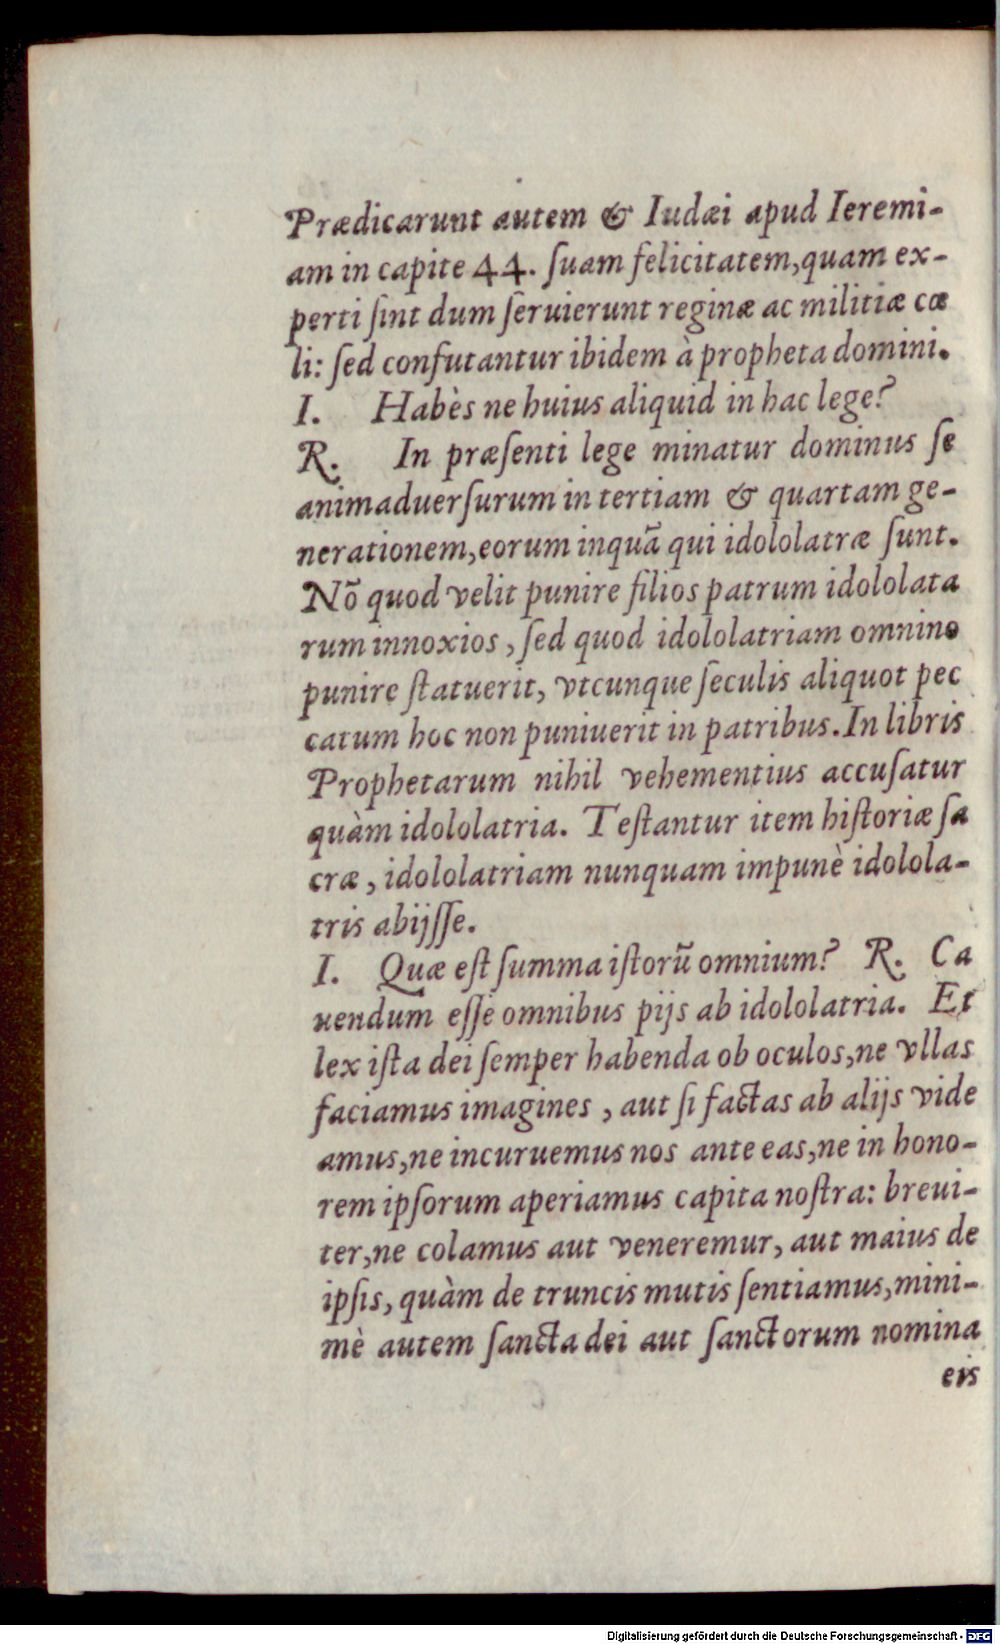 Prædicarunt autem & Iudæi apud Ieremi-
am in capite 44. ſuam felicitatem, quam ex-
perti ſint dum ſeruierunt reginæ ac militiæ cœ
li: ſed confutantur ibidem à propheta domini.
I. Habès ne huius aliquid in hac lege?
R. In præſenti lege minatur dominus ſe
animaduerſurum in tertiam & quartam ge-
nerationem, eorum inquã qui idololatræ ſunt.
Nõ quod velit punire filios patrum idololata
rum innoxios, ſed quod idololatriam omnino
punire ſtatuerit, vtcunque ſeculis aliquot pec
catum hoc non puniuerit in patribus. In libris
Prophetarum nihil vehementius accuſatur
quàm idololatria. Teſtantur item hiſtoriæ ſa
cræ, idololatriam nunquam impunè idolola-
tris abijſſe.
I. Quæ eſt ſumma iſtorũ omnium? R. Ca
uendum eſſe omnibus pijs ab idololatria. Et
lex iſta dei ſemper habenda ob oculos, ne vllas
faciamus imagines, aut ſi factas ab alijs vide
amus, ne incuruemus nos ante eas, ne in hono-
rem ipſorum aperiamus capita noſtra: breui-
ter, ne colamus aut veneremur, aut maius de
ipſis, quàm de truncis mutis ſentiamus, mini-
mè autem ſancta dei aut ſanctorum nomina
eis
Digitalisierung gefördert durch die Deutsche Forschungsgemeinschaft - DFG